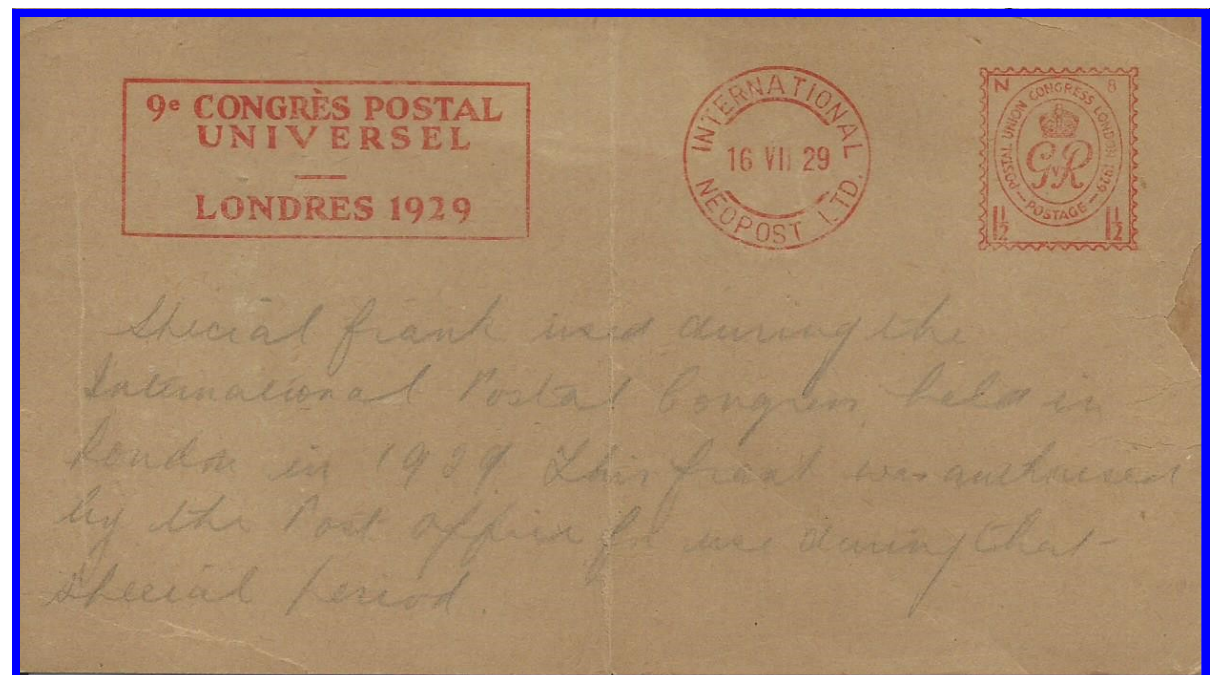 9e CONGRÈS POSTAL
UNIVERSEL
LONDRES 1929
INTERNATIONAL
16 VII 29
NEOPOST LTD.
N 8
POSTAL UNION CONGRESS LONDON 1929
GVR
POSTAGE
1½ 1½
Special frank used during the
International Postal Congress held in
London in 1929. This frank was authorised
by the Post Office for use during that
special period.